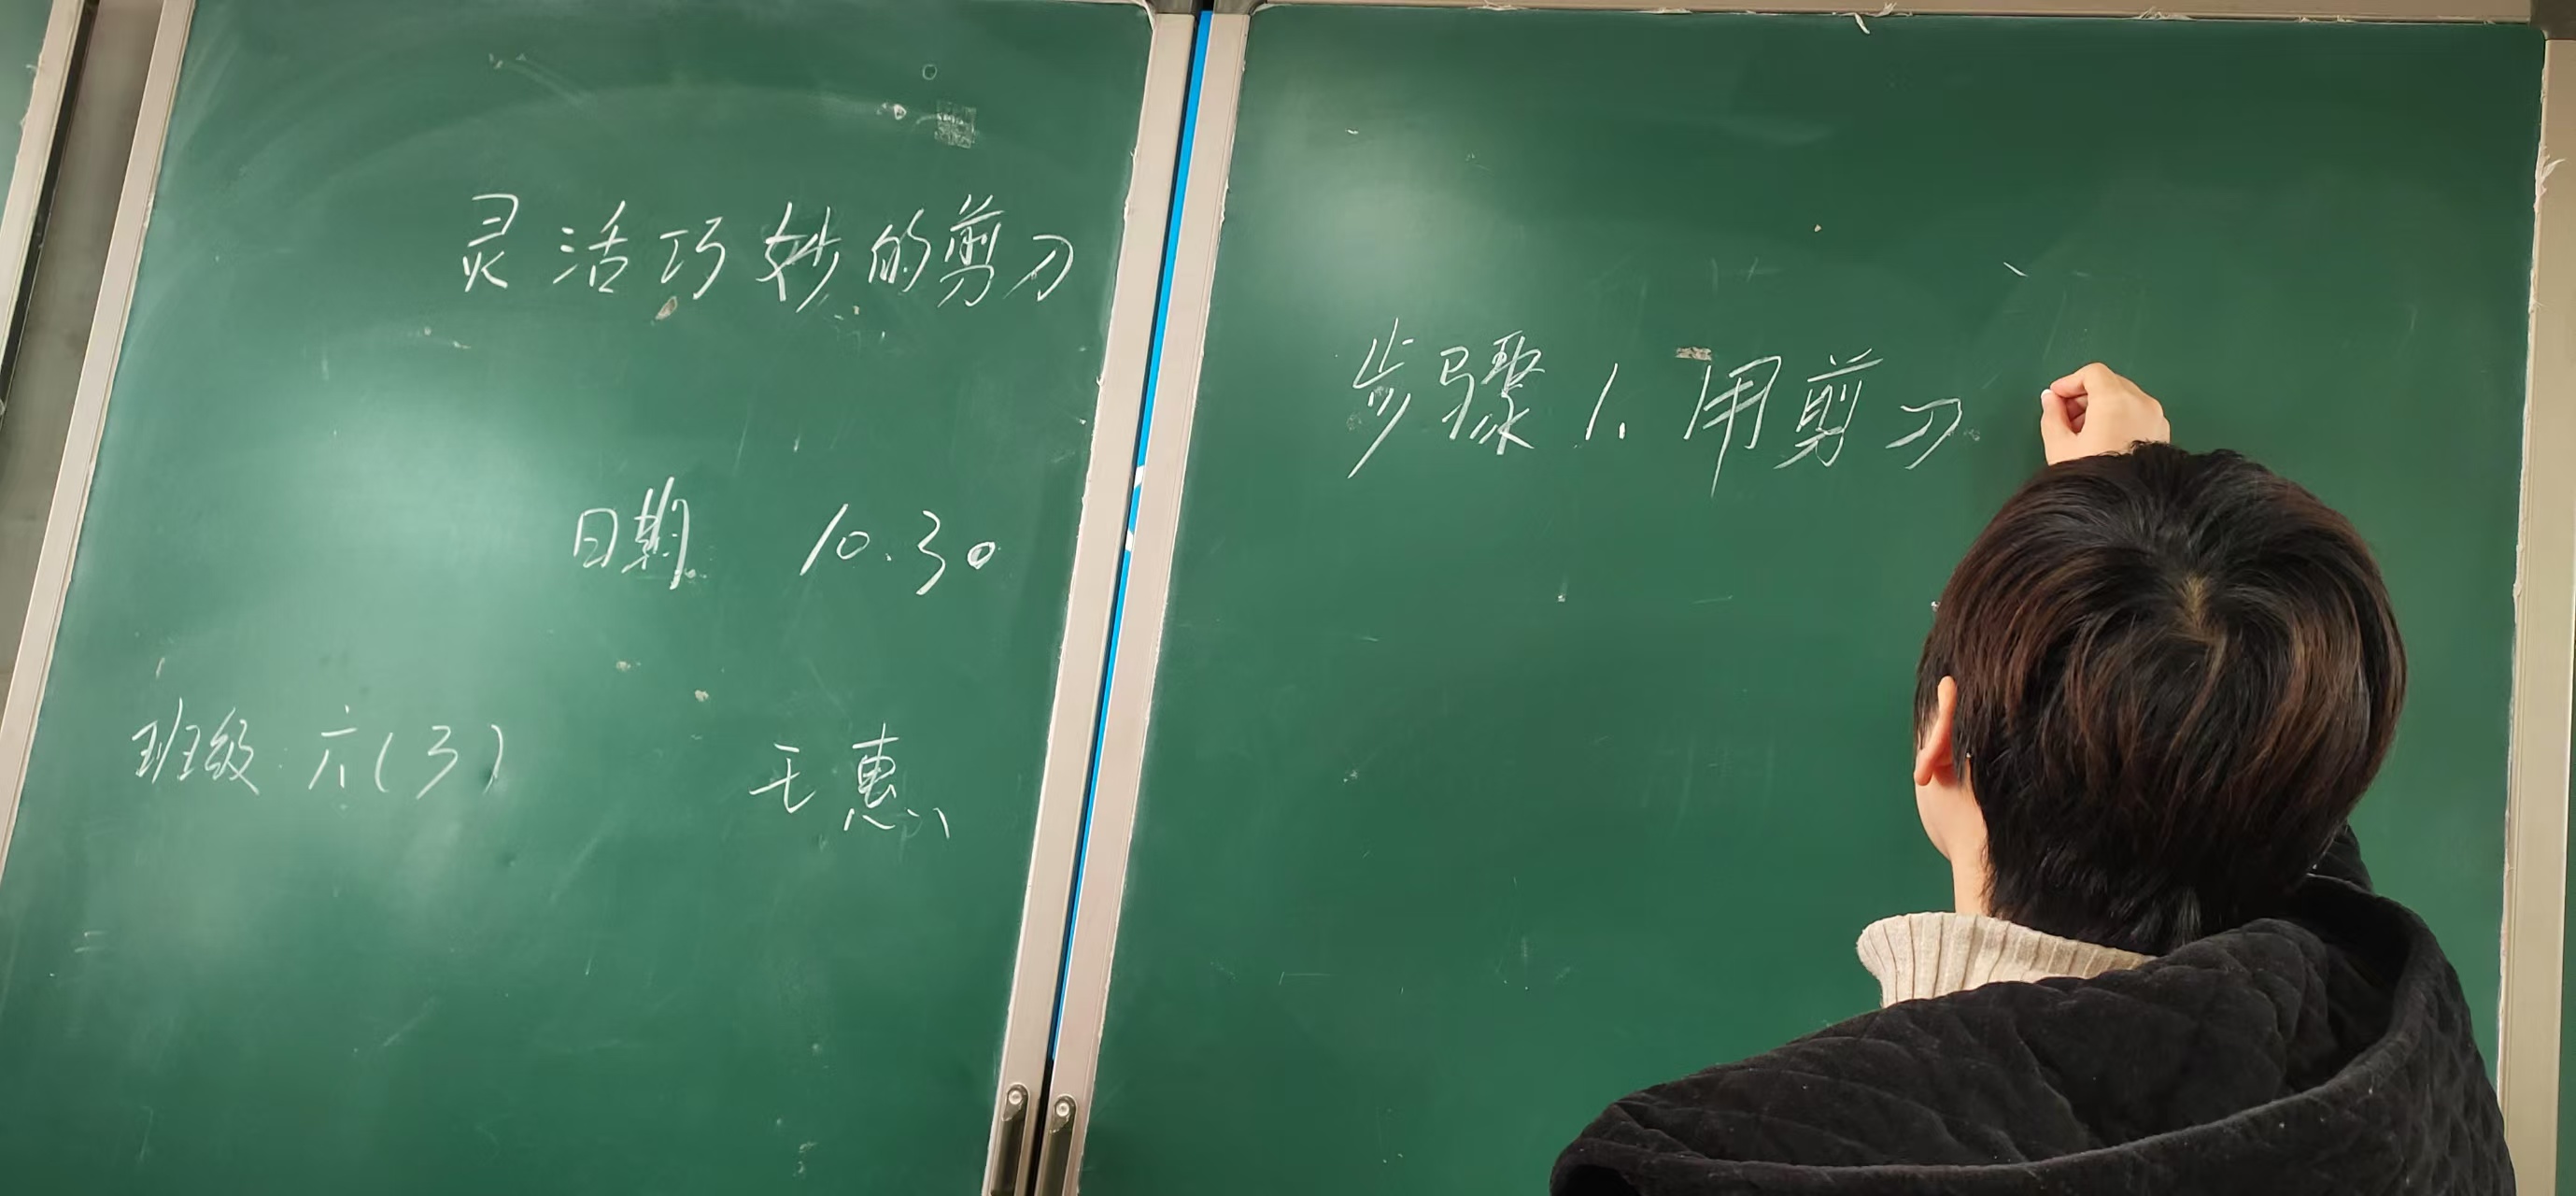 灵活巧妙的剪刀
日期 10.30
班级 六(3) 王惠
步骤 1、用剪刀